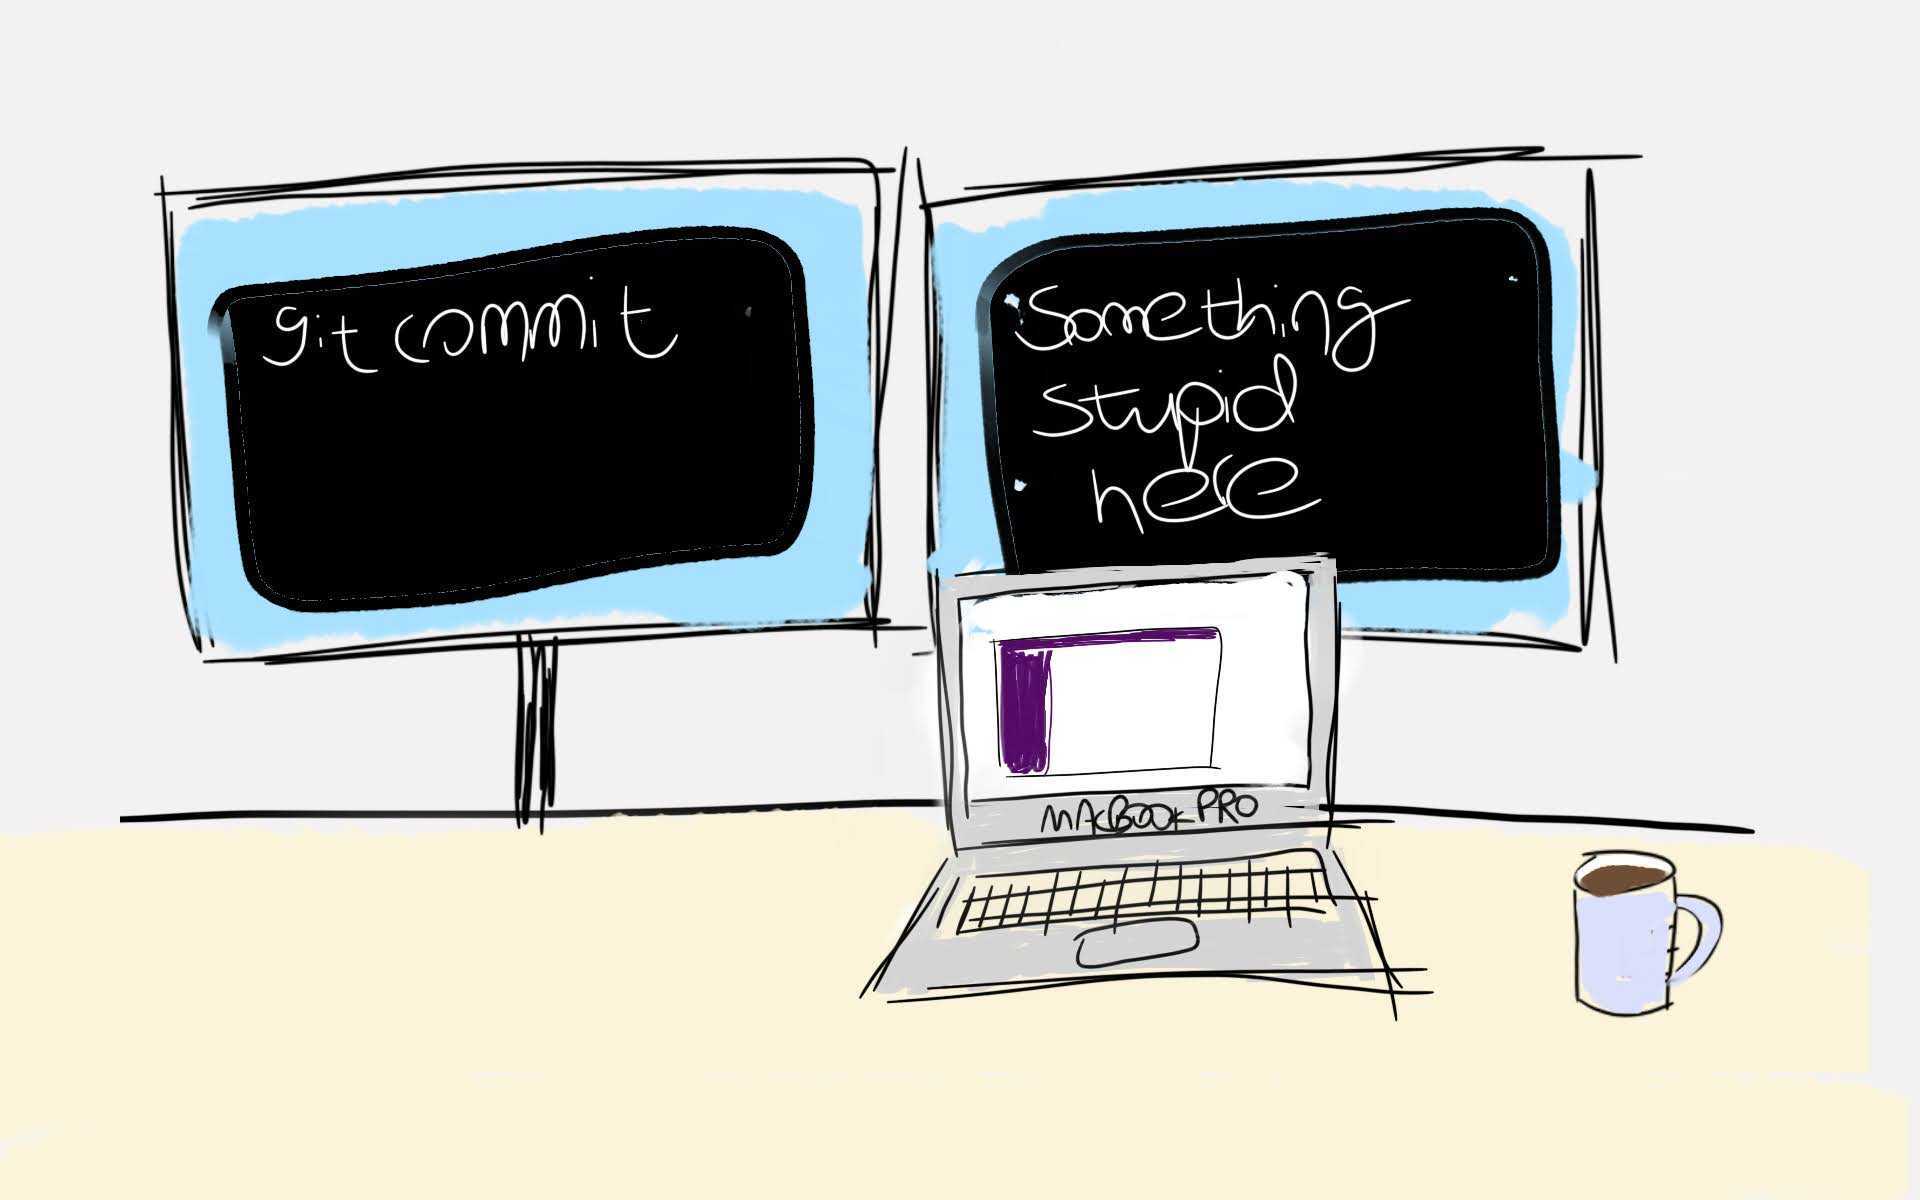 git commit
Something
stupid
here
MACBOOK PRO